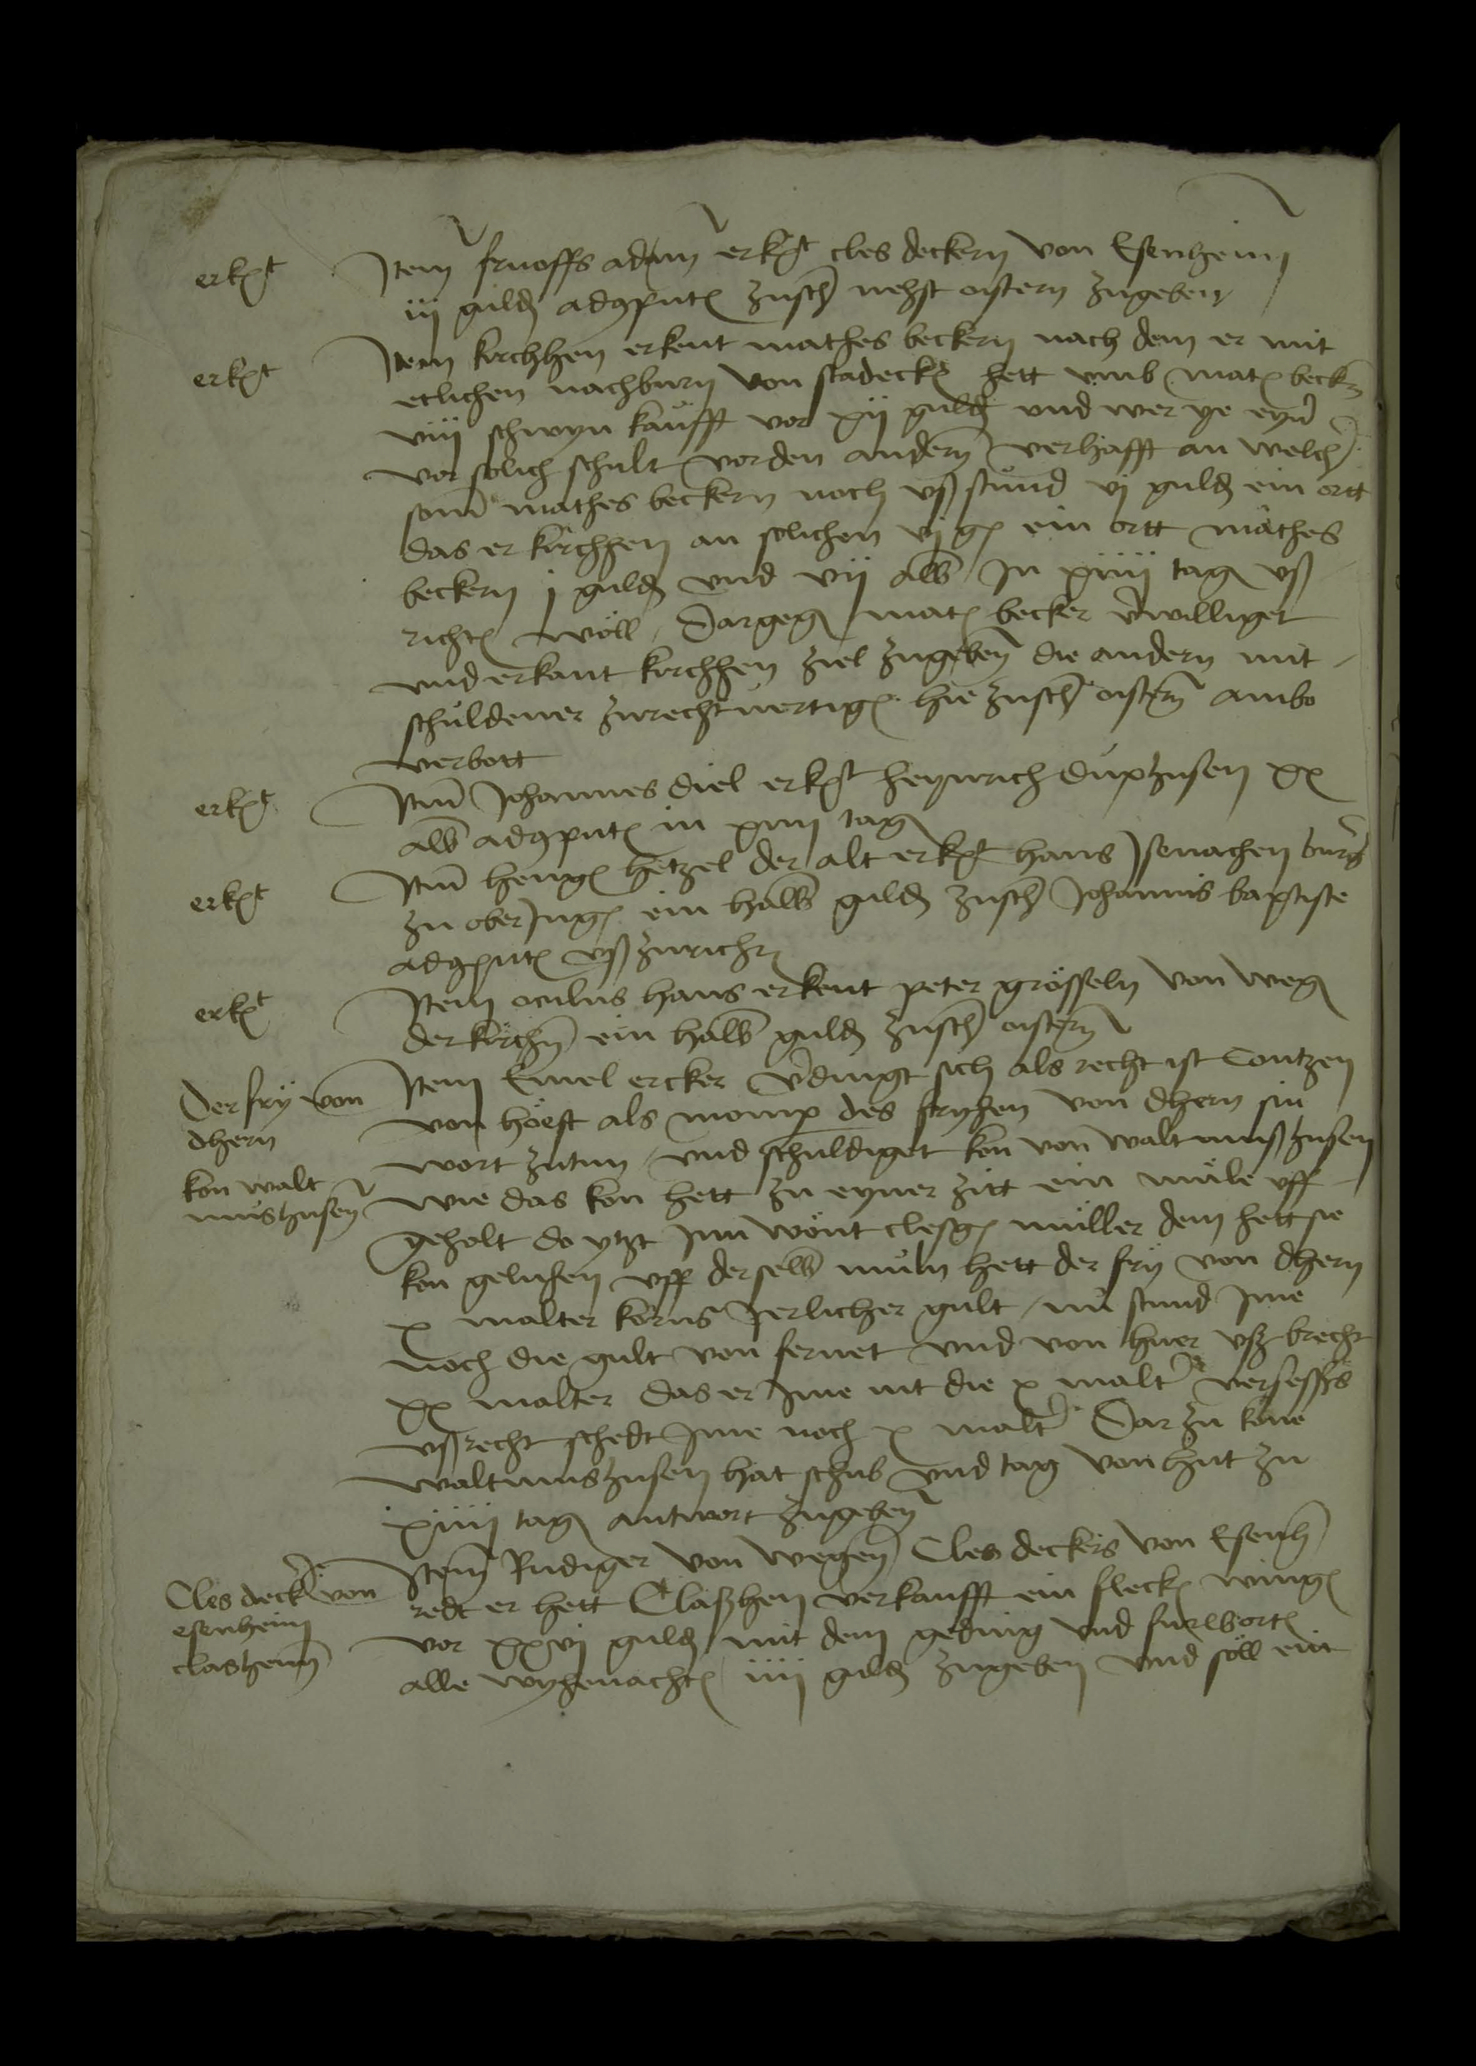 erk̄t
Item snoffs adam erk̄t cles deckern von Esenheim
iij guld adcputū zusch nehst ostern zugeben
erk̄t
Item kirchhen erkent mathes beckern nach dem er mit
etlichen nachburn von stadeckē hett vmb matē beckn̄
viij schwyn kaufft vor xij guld und wer ye eyn̄
vor solich schult vor den andern verhafft an welch̄
som̄ mathes beckern noch vßstund vj guld ein ortt
das er kirchhen an solichen vj gē ein ortt mathes
beckern j guld und vij alb In xiiij tag vß
richtē woll / Dargegē matē becker v̄williget
und erkant kirchhen ziel zugeben die andern mit
schuldener zurechtuertigē hie zusch ostern ambo
verbott
erk̄t
Itm̄ Johannes diel erk̄t heynrich Duxzusen xx
alb adcputū in xiiij tag
erk̄t
Itm̄ hengē hetzel der alt erk̄t hans Isenachen burḡ
zu ober Ingē ein halb guld zusch Johannis baptiste
adcputū vßzurichtē
erk̄t
Item oculus hans erkent peter grosseln von weg
der kirchen̄ ein halb guld zusch ostern
Der fry von
dhern
kon walt
mushusen
Item Emel ercker v̄dingt sich als recht ist Contzen
von hoest als momp des fryhen von dhern sin
wort zutun / und schuldiget kon von waltmußhusen
wie das kon hett zu eyner zitt ein mule vff
geholt do ytzt Inn wont clesgē muller dem hett sie
kon geluhen vff derselb muln hett der fry von dhern
x malter korns Jerlicher gult / nu stund Ime
noch die gult von fernet und von huer vß brecht
xx malter das er Ime nit die x malt̄ versessēs
vßrecht schedt Ime noch x malt̄ Dar zu kone
waltmushusen hat schub und tag von hut zu
xiiij tag antwort zugeben
Cles deck̄er von
esenheim
clashenn̄
Item Rudiger von wegen Cles deckers von Esenh̄
redt er hett Claßhen verkaufft ein fleckē wingē
vor xxvj guld mit dem geding und furwortē
alle wyhenachtē iiij guld zugeben und soll ent